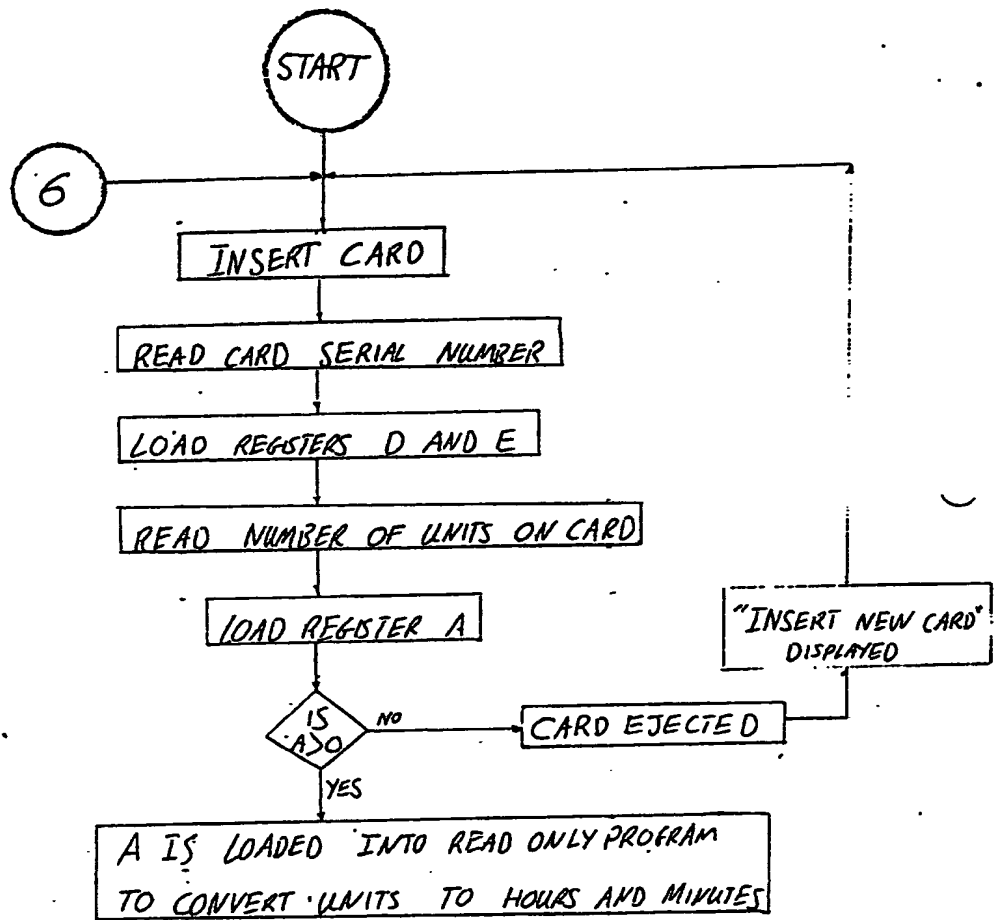 START
6
INSERT CARD
READ CARD SERIAL NUMBER
LOAD REGISTERS D AND E
READ NUMBER OF UNITS ON CARD
LOAD REGISTER A
"INSERT NEW CARD"
DISPLAYED
IS
A>0
NO
CARD EJECTED
YES
A IS LOADED INTO READ ONLY PROGRAM
TO CONVERT UNITS TO HOURS AND MINUTES